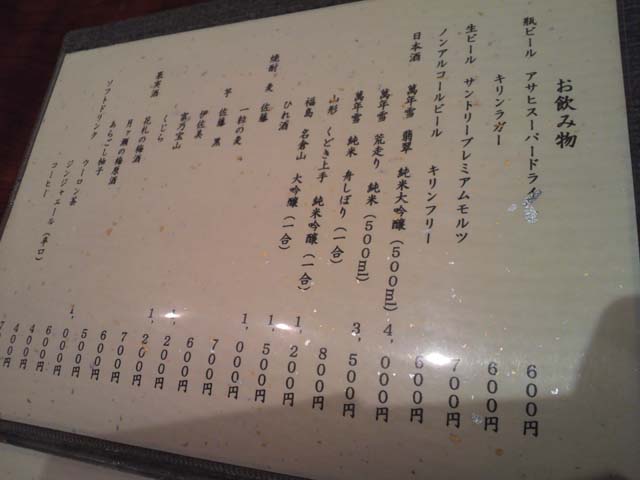 お飲み物
瓶ビール アサヒスーパードライ 600円
キリンラガー 600円
生ビール サントリープレミアムモルツ 700円
ノンアルコールビール キリンフリー 600円
日本酒 萬年雪 翡翠 純米大吟醸(500ml) 4,000円
萬年雪 荒走り 純米(500ml) 3,500円
萬年雪 純米 舟しぼり(一合) 800円
山形 くどき上手 純米吟醸(一合) 1,200円
福島 名倉山 大吟醸(一合) 1,500円
ひれ酒 1,000円
焼酎 麦 佐藤 700円
一粒の麦 600円
芋 佐藤 黒 1,200円
伊佐美 1,200円
富乃宝山 700円
くじら 600円
果実酒 花札の梅酒 500円
月ヶ瀬の梅原酒 1,000円
あらごし柚子 600円
ソフトドリンク ウーロン茶 400円
ジンジャエール(辛口) 400円
コーヒー